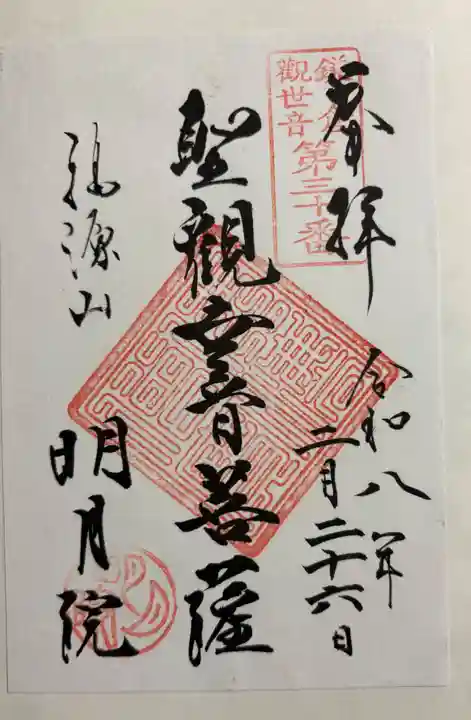 奉拝
鎌倉
觀世音第三十番
令和八年
二月二十六日
聖觀世音菩薩
福源山
明月院